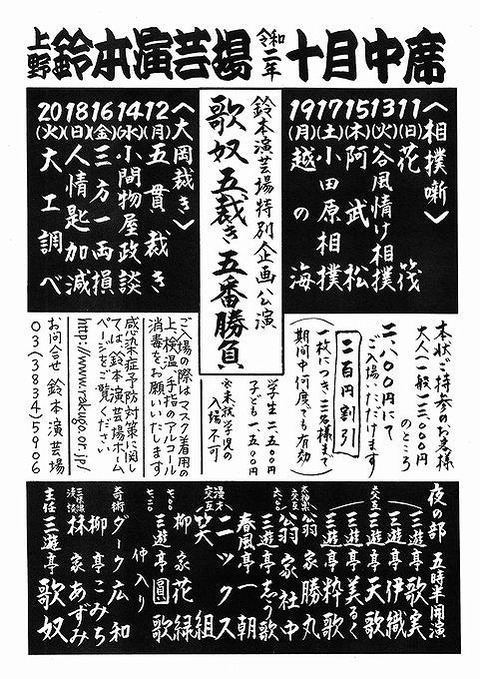 上野鈴本演芸場 令和二年 十月中席
鈴本演芸場特別企画公演
歌奴五裁き五番勝負
〈相撲噺〉
11(日)花筏
13(火)谷風情け相撲
15(木)阿武松
17(土)小田原相撲
19(月)越の海
〈大岡裁き〉
12(月)五貫裁き
14(水)小間物屋政談
16(金)三方一両損
18(日)人情匙加減
20(火)大工調べ
本状ご持参のお客様
大人(一般)三、〇〇〇円
のところ
二、八〇〇円にて
ご入場いただけます
二百円割引
(一枚につき三名様まで
期間中何度でも有効)
学生 二、五〇〇円
子ども 一、五〇〇円
※未就学児の
入場不可
ご入場の際はマスク着用の
上、検温、手指のアルコール
消毒をお願いいたします
感染症予防対策に関し
ては、鈴本演芸場ホーム
ページをご覧ください
http://www.rakugo.or.jp/
お問合せ 鈴本演芸場
03(3834)5906
夜の部 五時半開演
三遊亭歌実
交互 三遊亭伊織
三遊亭天歌
三遊亭美るく
三遊亭粋歌
太神楽 翁家勝丸
交互 翁家社中
三遊亭志う歌
春風亭一朝
漫才 ニックス
交互 笑組
三遊亭圓歌
柳家花緑
仲入り
奇術 ダーク広和
柳亭こみち
三味線漫談 林家あずみ
主任 三遊亭歌奴